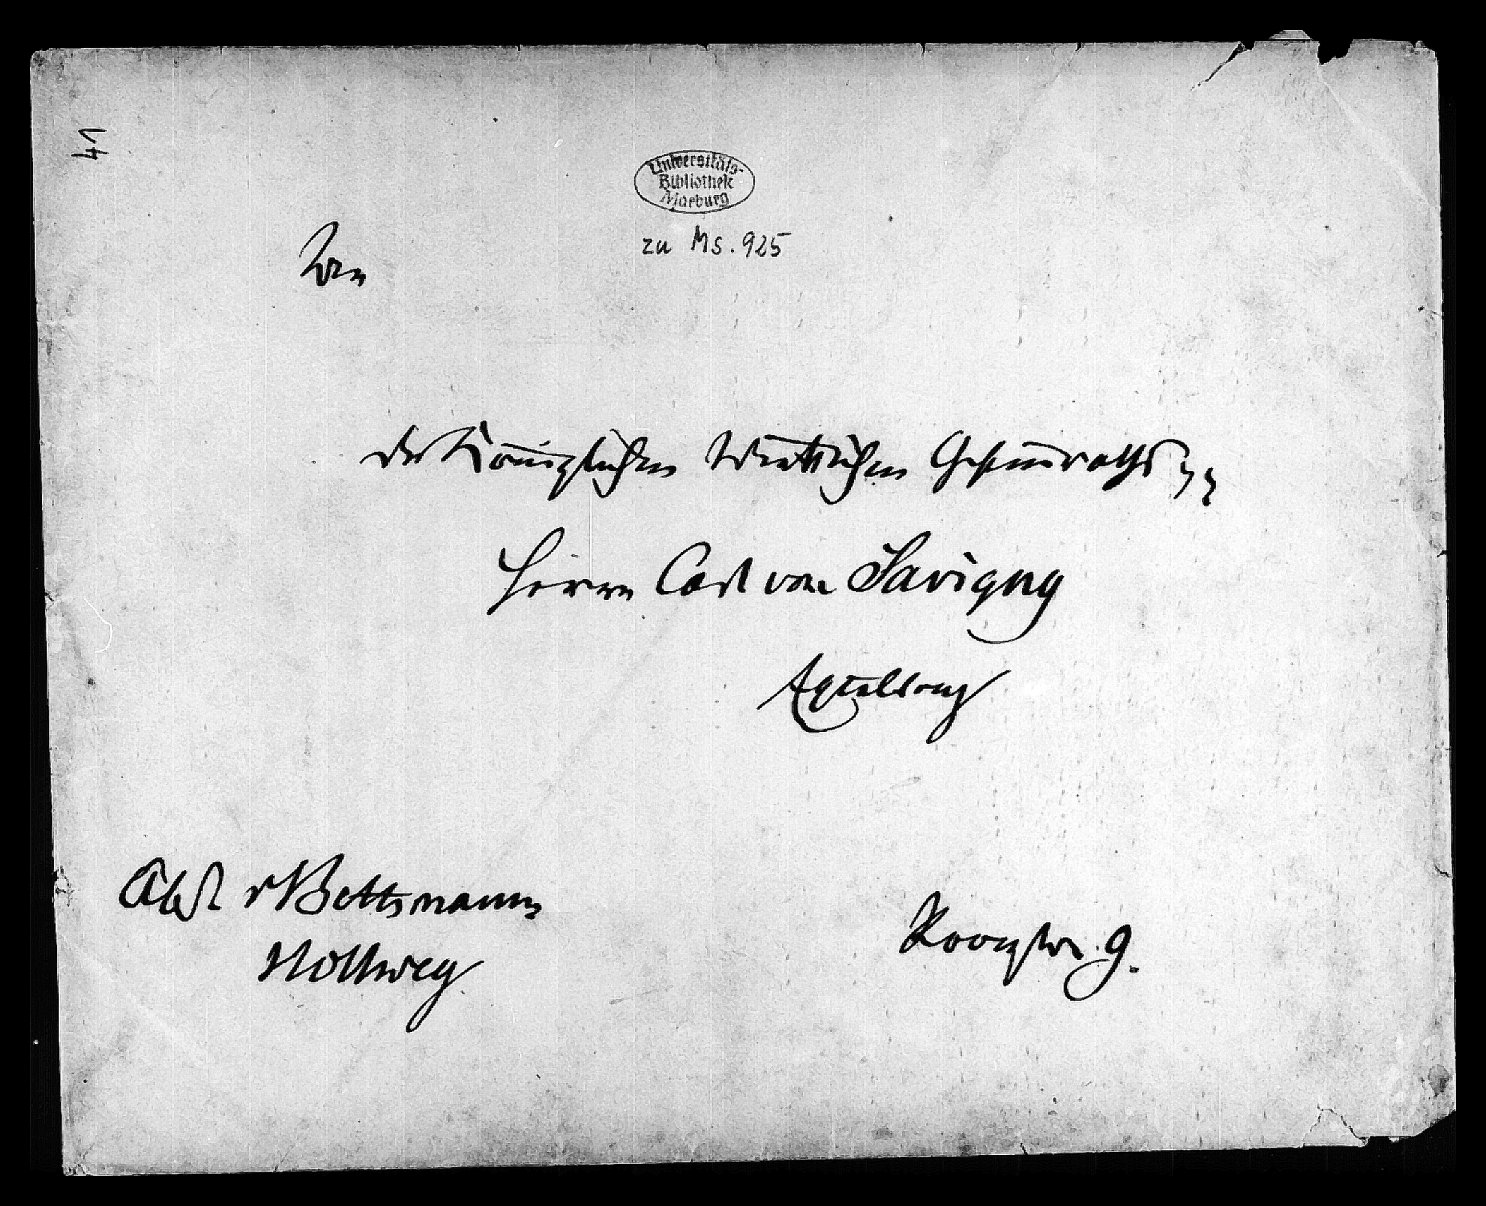 41
Universitäts-
Bibliothek
Marburg
zu Ms. 925
des Königlichen Wirklichen Geheimraths
Herrn Carl von Savigny
Excellenz
v Bethmann
Hollweg
9.